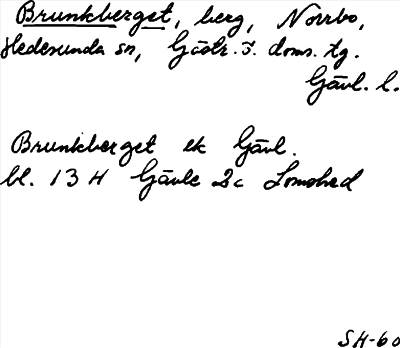 Brunkberget, berg, Norrbo,
Hedesunda sn, Gästr. ö. doms. tg.
Gävl. l.
Brunkberget ek Gävl.
bl. 13 H Gävle 2c Lomshed
SH-60